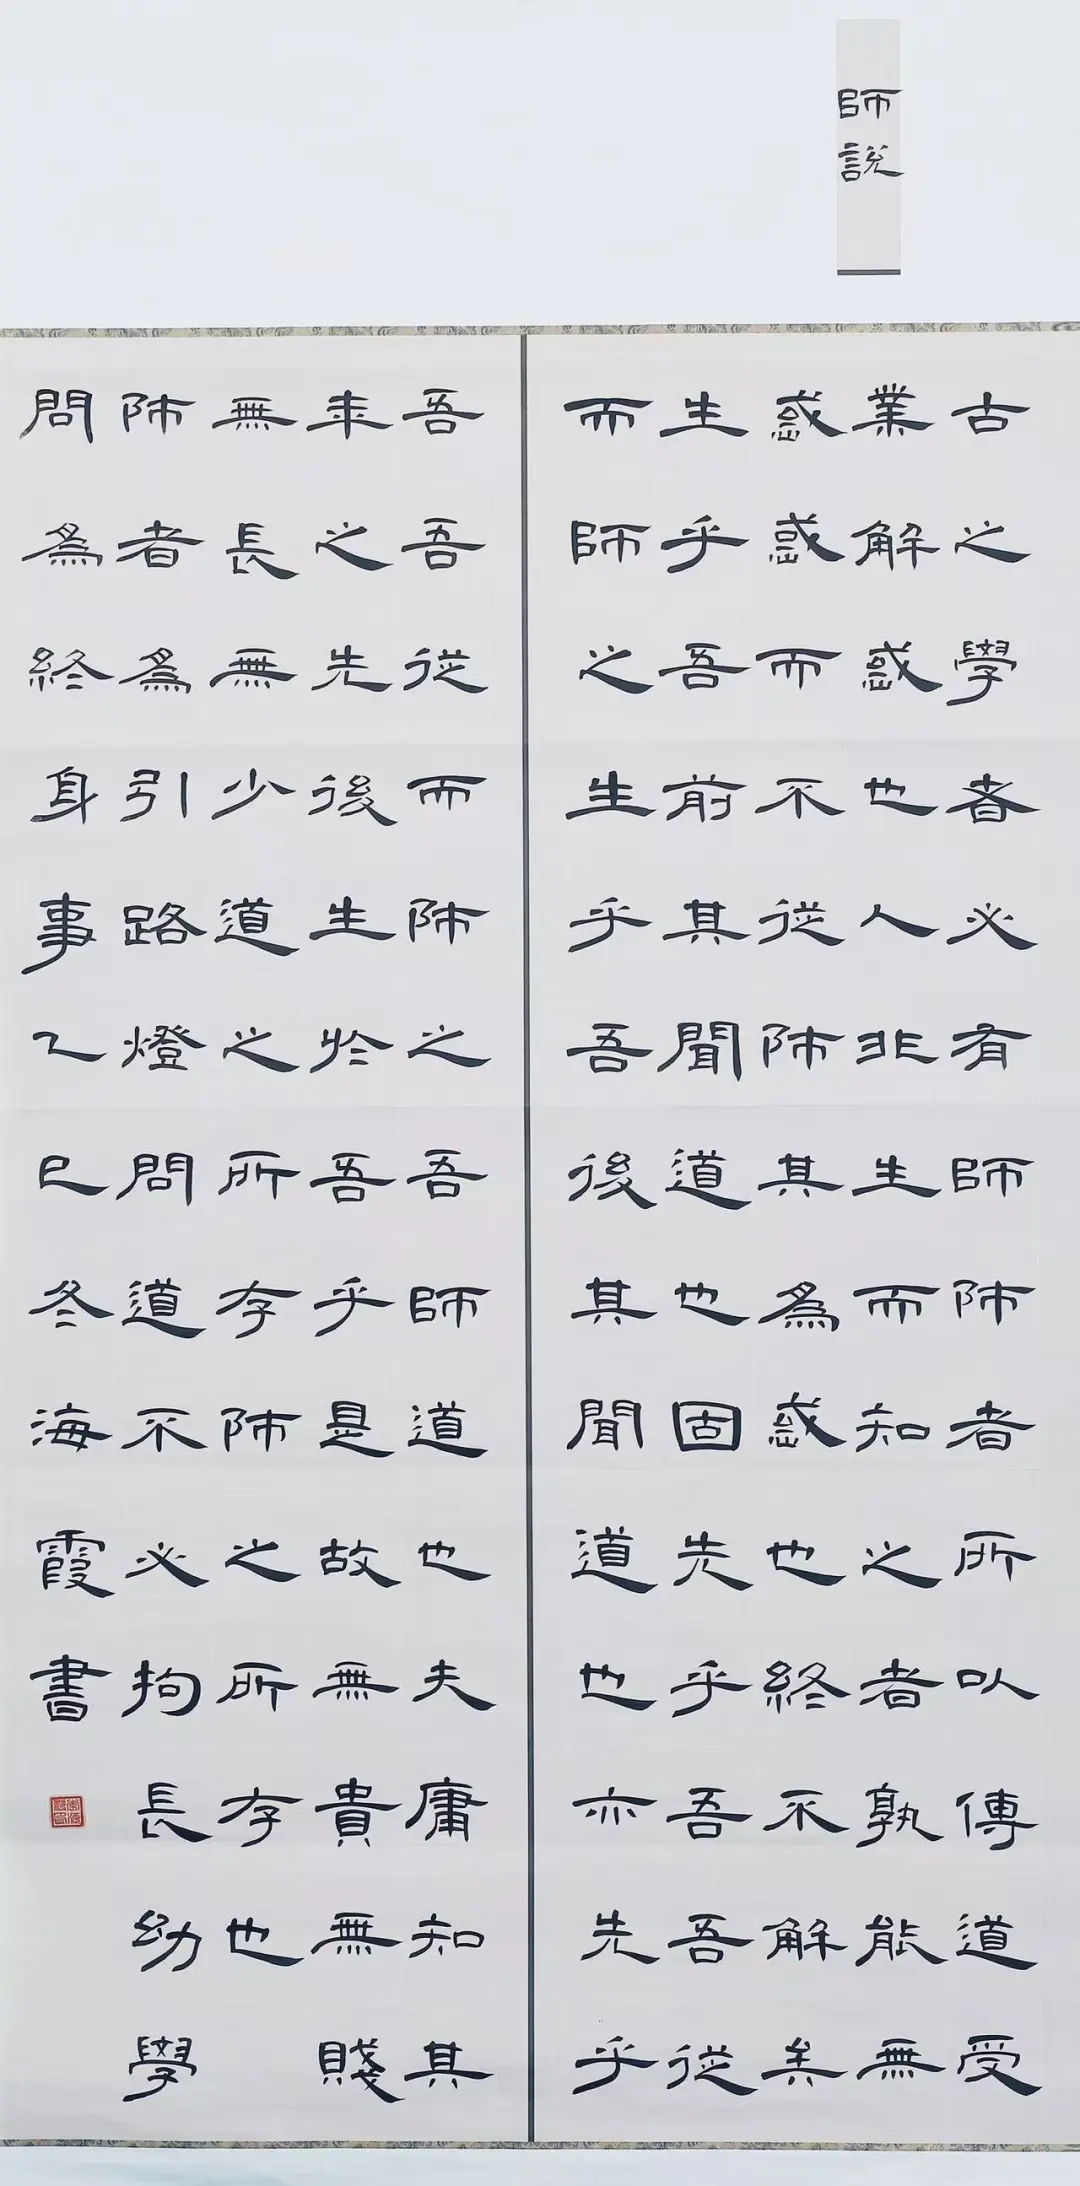 師說
古之學者必有師師者所以傳道受
業解惑也人非生而知之者孰能無
惑惑而不從師其爲惑也終不解矣
生乎吾前其聞道也固先乎吾吾從
而師之生乎吾後其聞道也亦先乎
吾吾從而師之吾師道也夫庸知其
年之先後生於吾乎是故無貴無賤
無長無少道之所存師之所存也
師者爲引路燈問道不必拘長幼學
問爲終身事乙巳冬海霞書